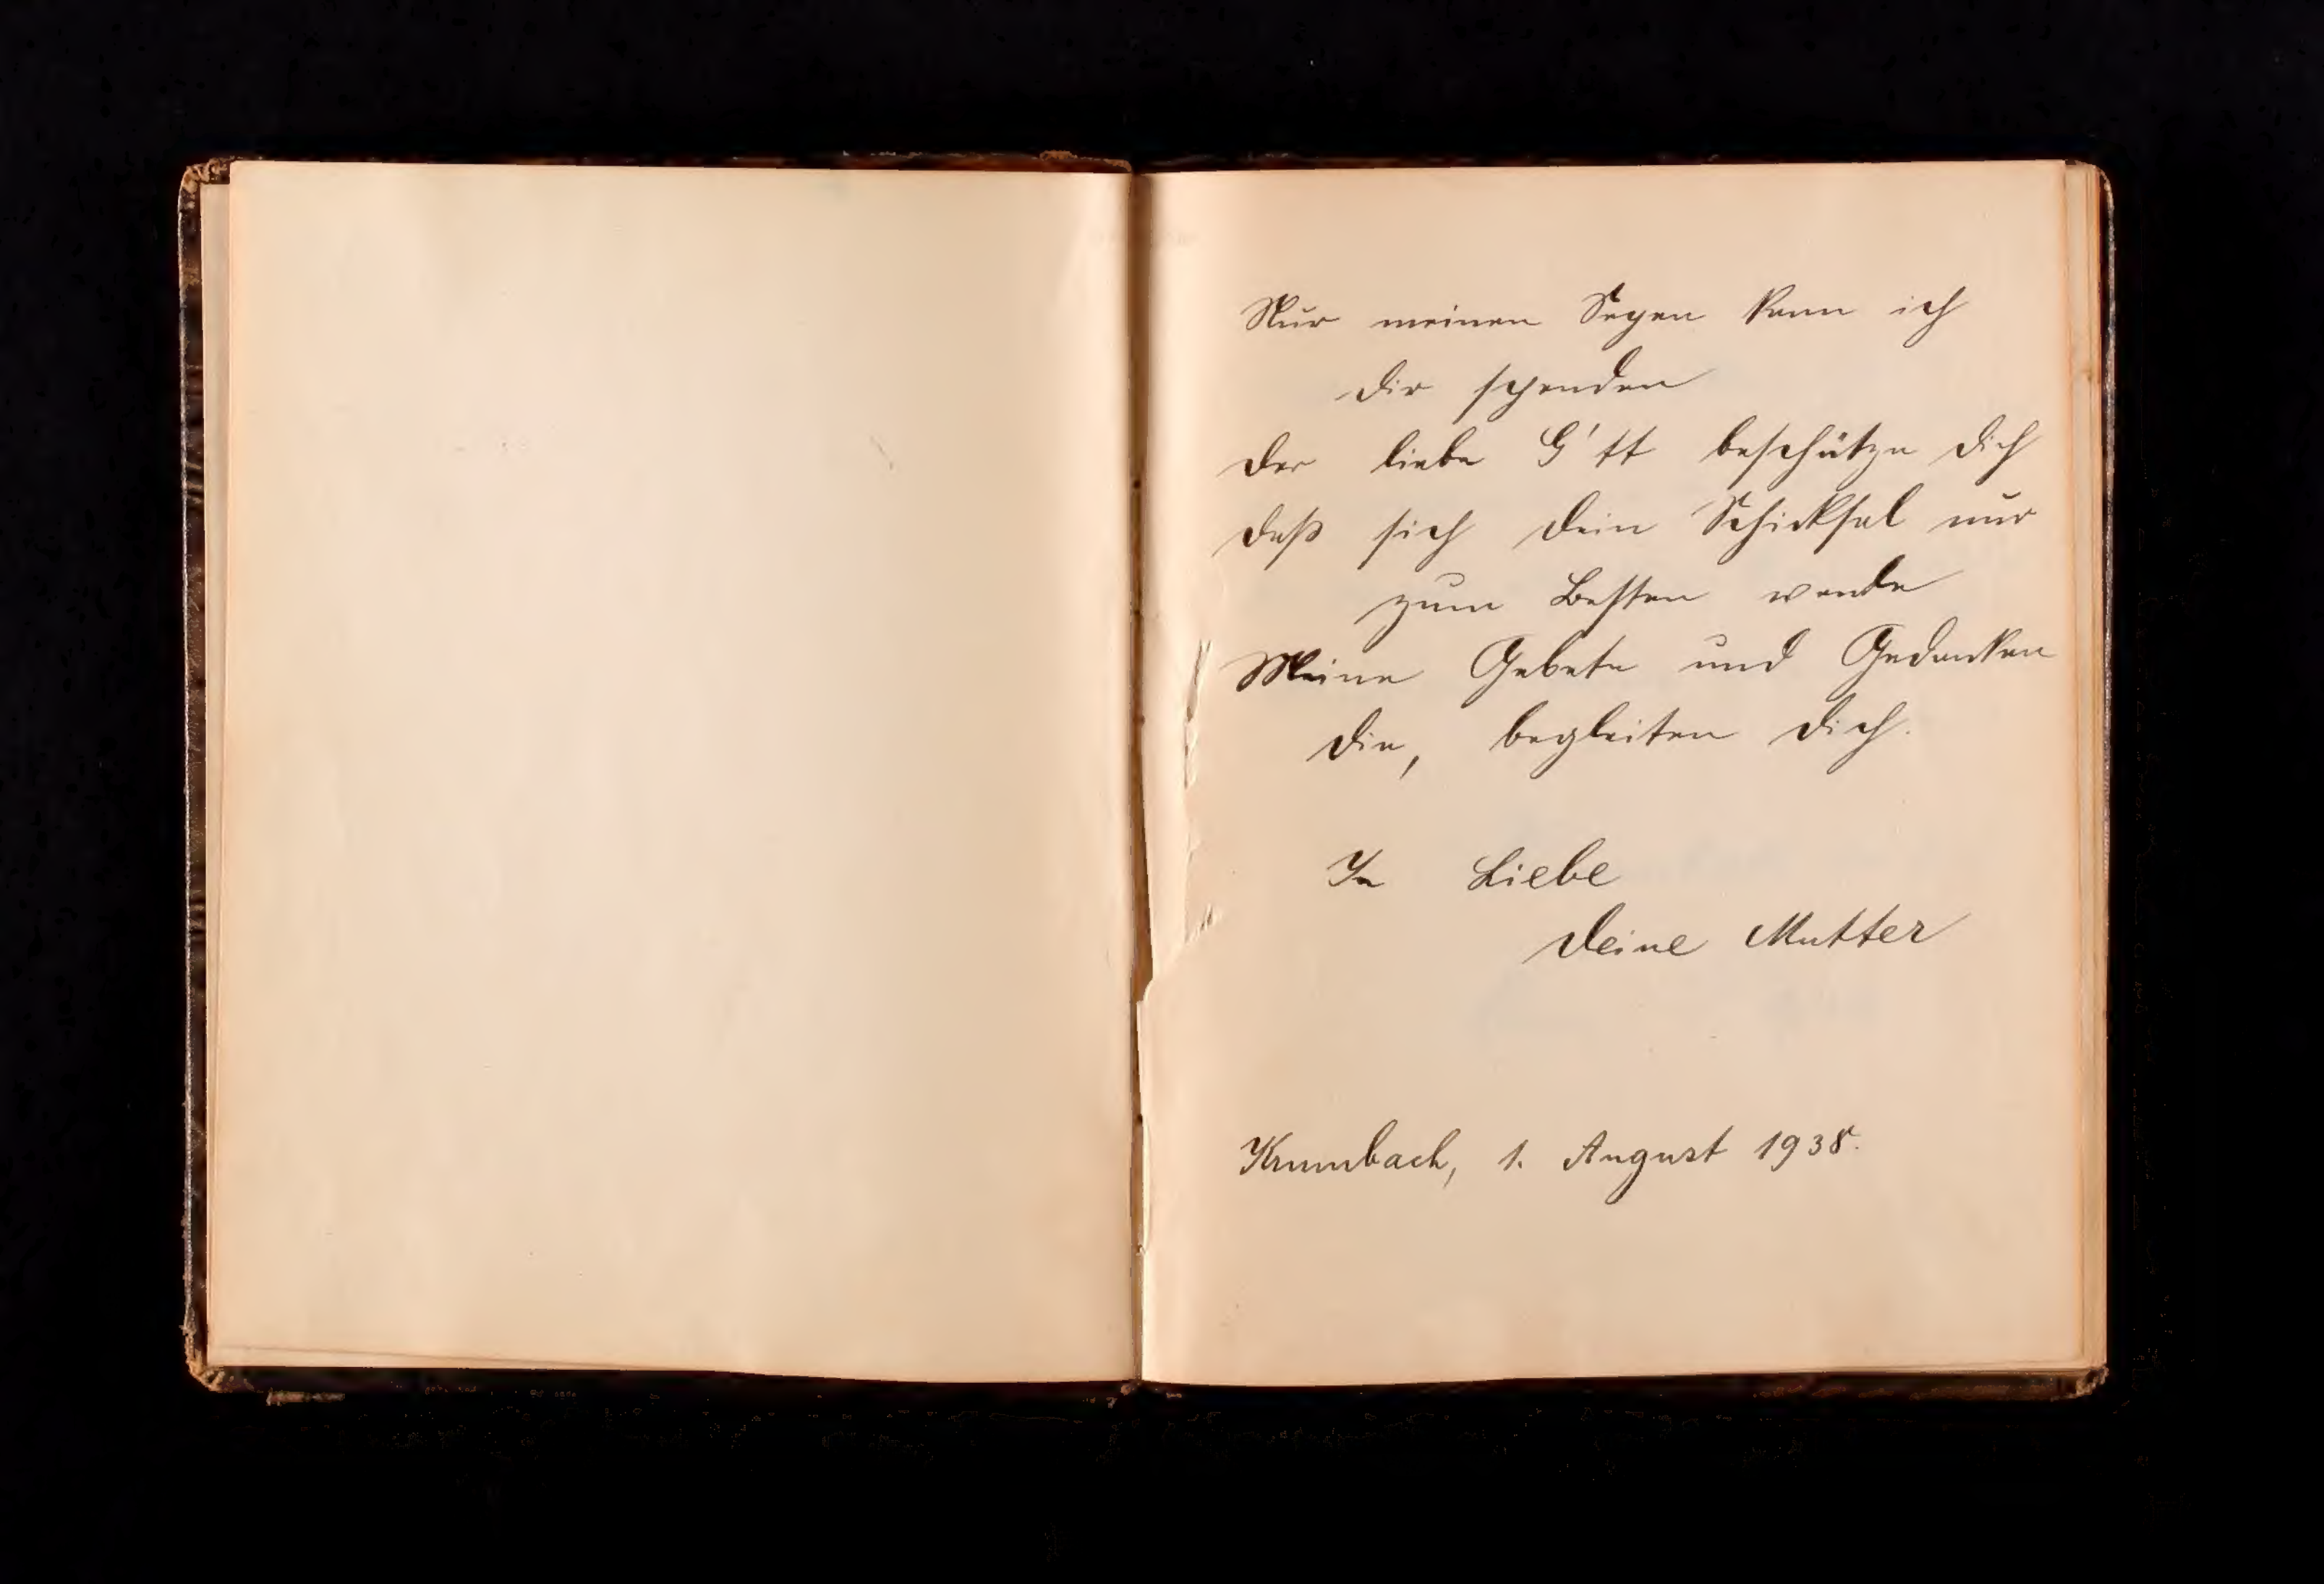 Nur meinen Segen kann ich
dir spenden
der liebe G'tt beschütze dich
daß sich dein Schicksal nur
zum Besten wende
Meine Gebete und Gedanken
die, begleiten dich.
In Liebe
deine Mutter
Krumbach, 1. August 1938.